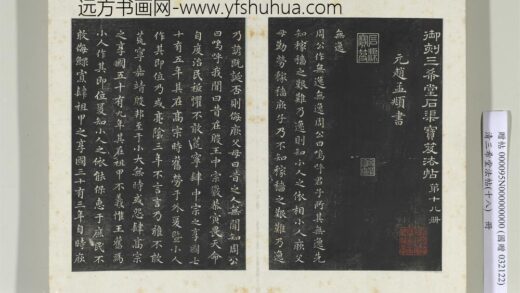 远方书画网- www.yfshuhua.com
御刻三希堂石渠寶笈法帖 第十八冊
元趙孟頫書
無逸
周公作無逸周公曰嗚呼君子所其無逸先
知稼穡之艱難乃逸則知小人之依相小人厥父
母勤勞稼穡厥子乃不知稼穡之艱難乃逸
乃諺既誕否則侮厥父母曰昔之人無聞知周公
曰嗚呼我聞曰昔在殷王中宗嚴恭寅畏天命
自度治民祗懼不敢荒寧肆中宗之享國七
十有五年其在高宗時舊勞于外爰暨小人
作其即位乃或亮陰三年不言言乃雍不敢
荒寧嘉靖殷邦至于小大無時或怨肆高宗
之享國五十有九年其在祖甲不義惟王舊為
小人作其即位爰知小人之依能保惠于庶民不
敢侮鰥寡肆祖甲之享國三十有三年自時厥
贈帖 000095N000000000 (國贈 032122)
清三希堂法帖(十八) 冊